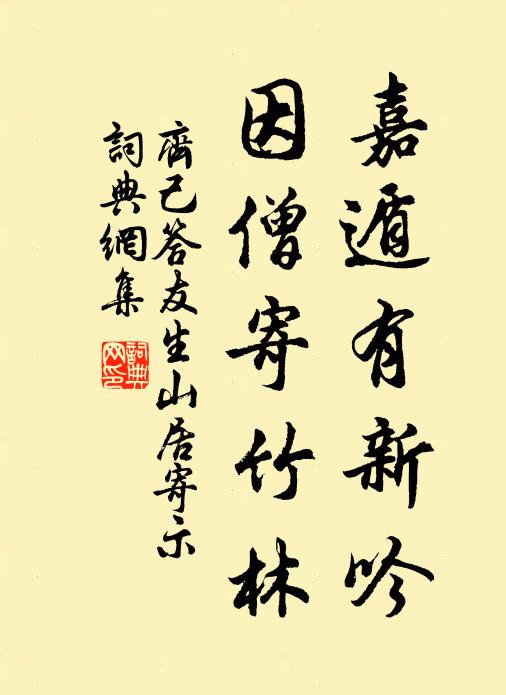 嘉遁有新吟
因僧寄竹林
齊己答友生山居寄示
詞典網集
詞典网印